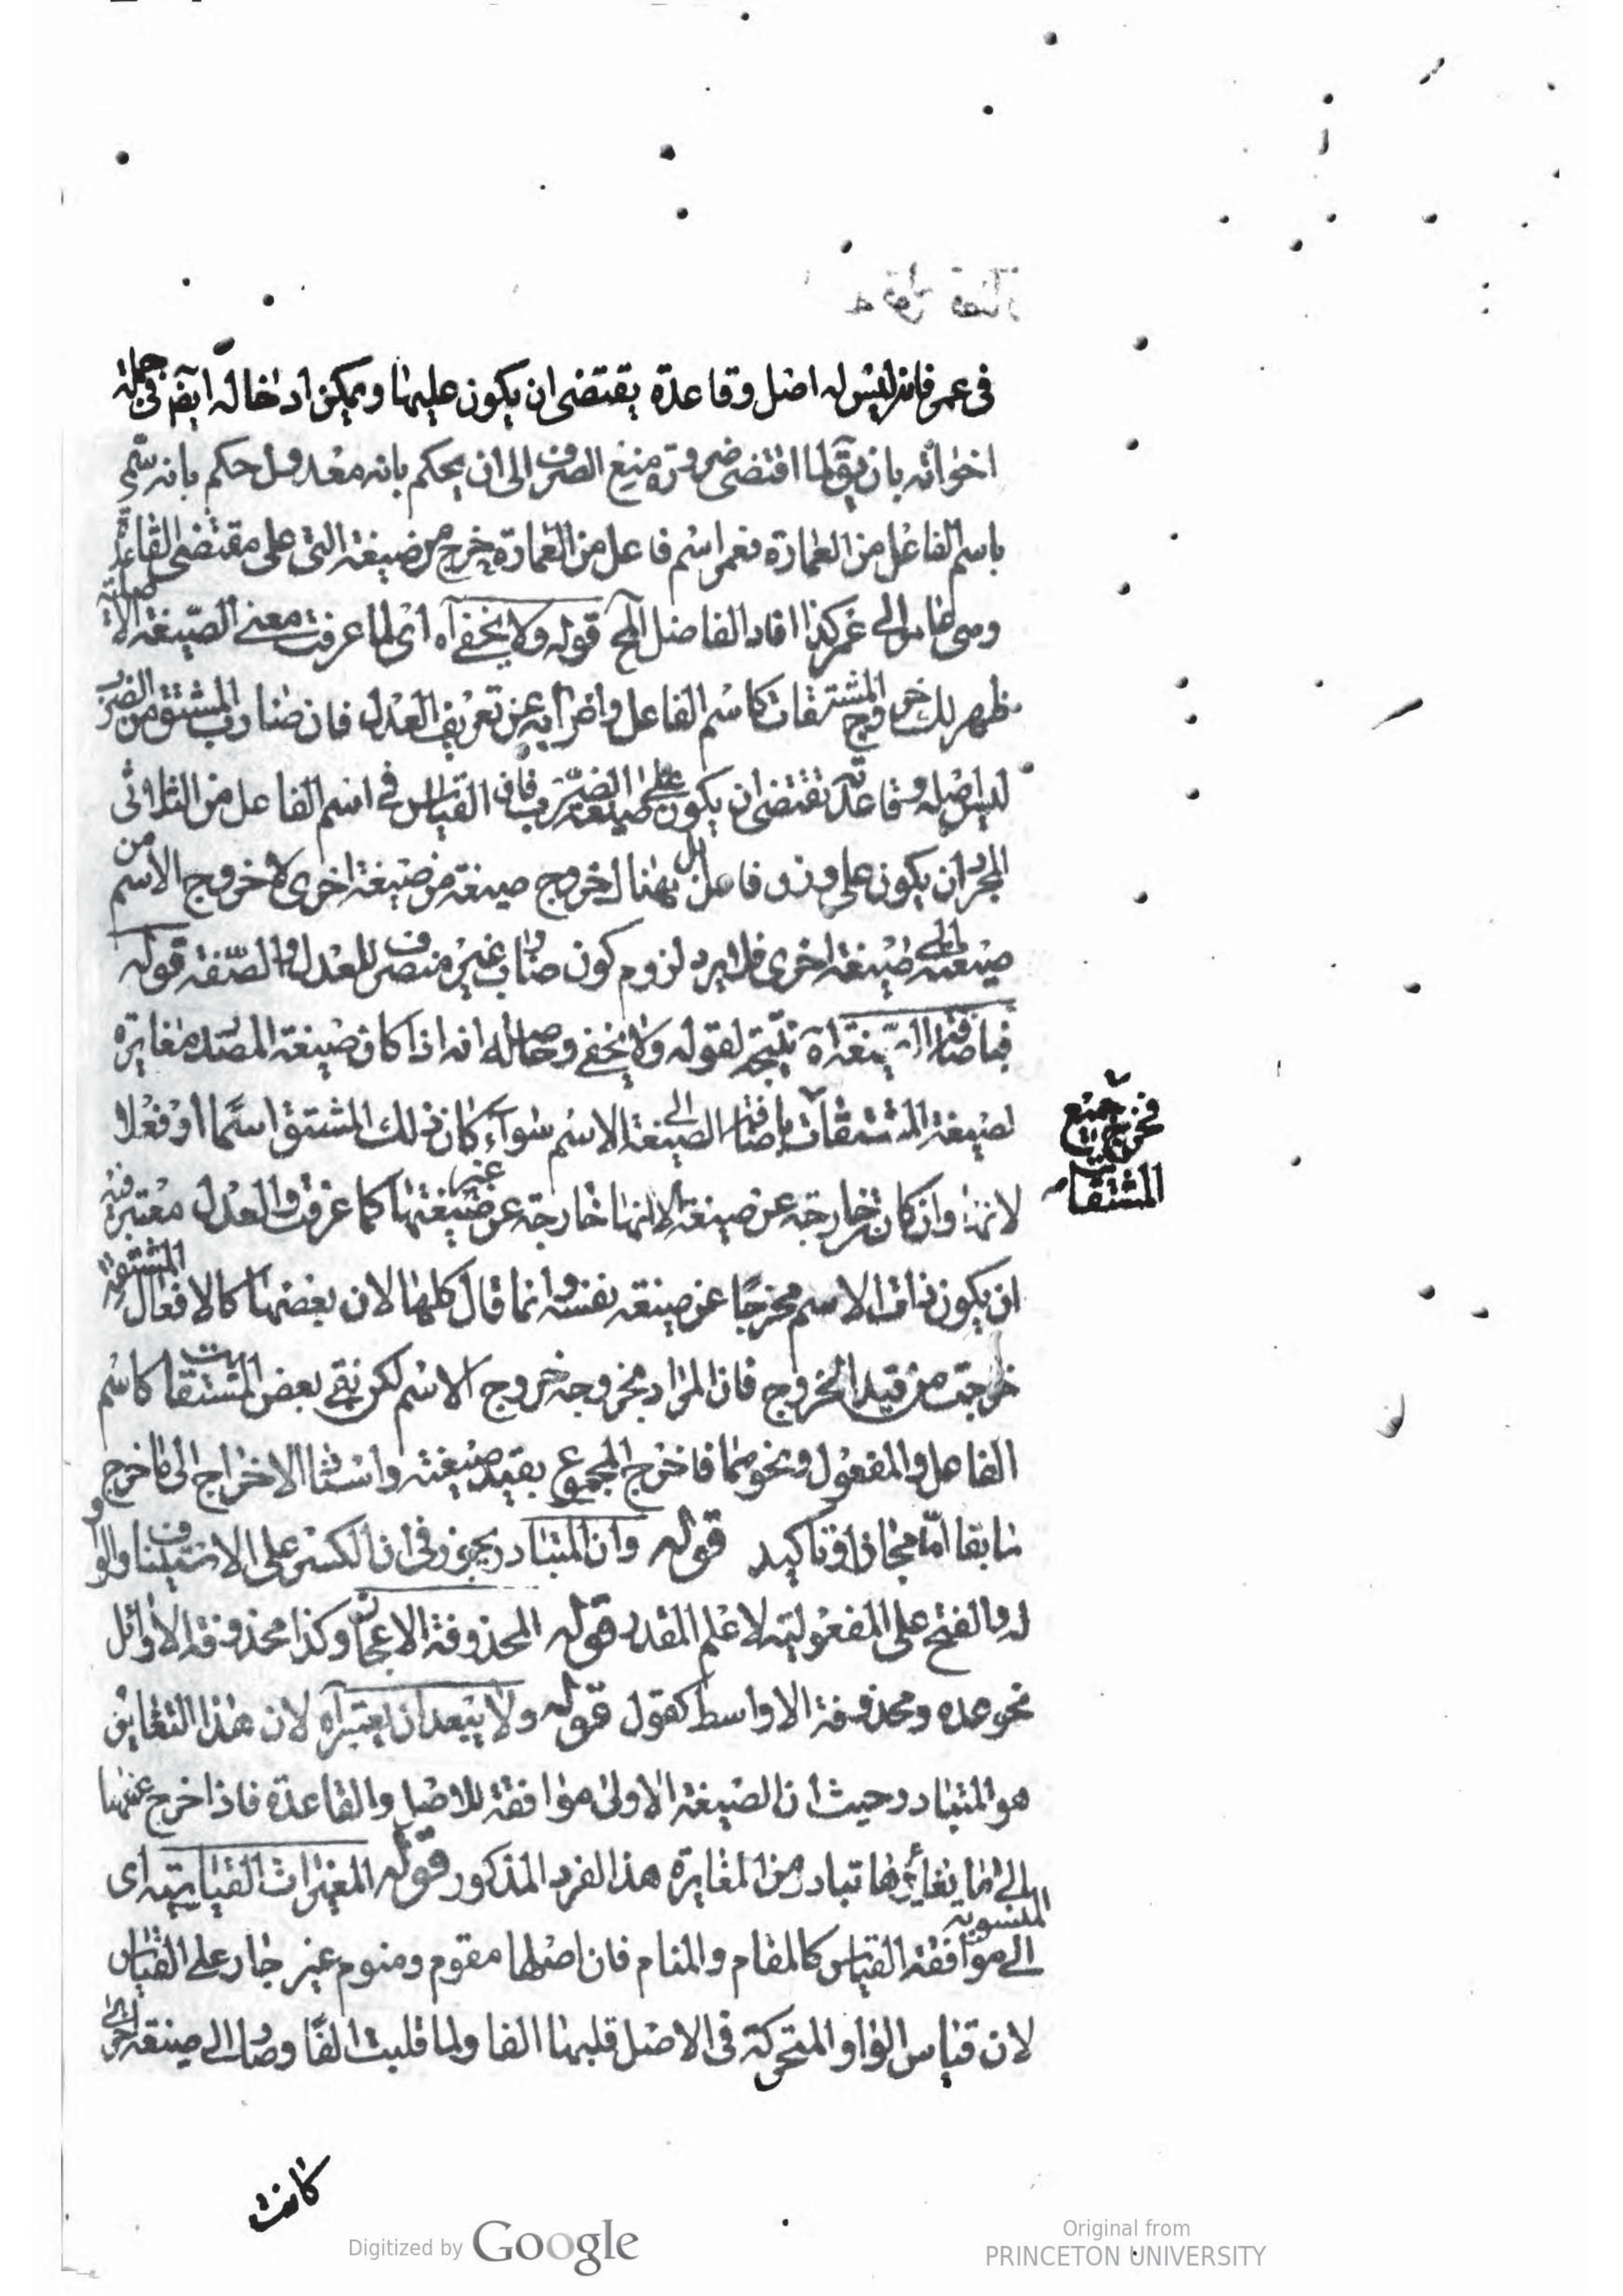 فى عمر فانه ليس له اصل وقاعدة يقتضى ان يكون عليها ويمكن ادخاله ايضا فى جملة
اخواته بان يقال لما اقتضى ضرورة منع الصرف الى ان يحكم بانه معدول حكم بانه سمى
باسم الفاعل من العمارة فعمر اسم فاعل من العمارة خرج من صيغته التى على مقتضى القاعدة
عمر كذا افاد الفاضل المح قوله ولا يخفى آه اى لما عرفت معنى الصيغة
ظهر لك خروج المشتقات كاسم الفاعل واضرابه عن تعريف العدل فان ضارب المشتق من الضرب
ليس اصله وقاعدته تقتضى ان يكون على صيغة الضرب فان القياس فى اسم الفاعل من الثلاثى
المجرد ان يكون على وزن فاعل خروج صيغة من صيغة اخرى لا خروج الاسم من
صيغة الى صيغة اخرى فلا يرد لزوم كون ضارب غير منصرف للعدل والصفة قوله
فباضافة الصيغة آه نتيجة لقوله ولا يخفى وحاصله انه اذا كان صيغة المصدر مغايرة
لصيغة المشتقات باضافة الصيغة الى الاسم سواء كان ذلك المشتق اسما او فعلا
فخرج جميع
المشتقات
لانها وان كان خارجة عن صيغة الا انها خارجة عن صيغة غيرها كما عرفت والعدل معتبر فيه
ان يكون ذات الاسم مخرجا عن صيغته نفسه وانما قال كلها لان بعضها كالافعال المشتقة
خرجت من قيد الخروج فان المراد بخروجه خروج الاسم لكن بقى بعض المشتقات كاسم
الفاعل والمفعول ونحوهما فاخرج المجموع بقيد صيغته واسناد الاخراج الى ما خرج
سابقا اما مجاز او تاكيد قوله وان المتبادر يجوز فى ان الكسر على الاستيناف والواو
له والفتح على المفعولية لاعلم المقدر قوله المحذوفة الاعجاز وكذا محذوفة الاوائل
نحو عدة ومحذوفة الاواسط كقول قوله ولا يبعد ان يعتبر آه لان هذا التغاير
هو المتبادر وحيث ان الصيغة الاولى موافقة للاصل والقاعدة فاذا خرج عنها
الى ما يغايرها تبادر من المغايرة هذا الفرد المذكور قوله المغيرات القياسية اى
المنسوبة
الى موافقة القياس كالمقام والمنام فان اصلها مقوم ومنوم غير جار على القياس
لان قياس الواو المتحركة فى الاصل قلبها الفا ولما قلبت الفا وصار الى صيغة اخرى
كانت
Digitized by Google
Original from
PRINCETON UNIVERSITY